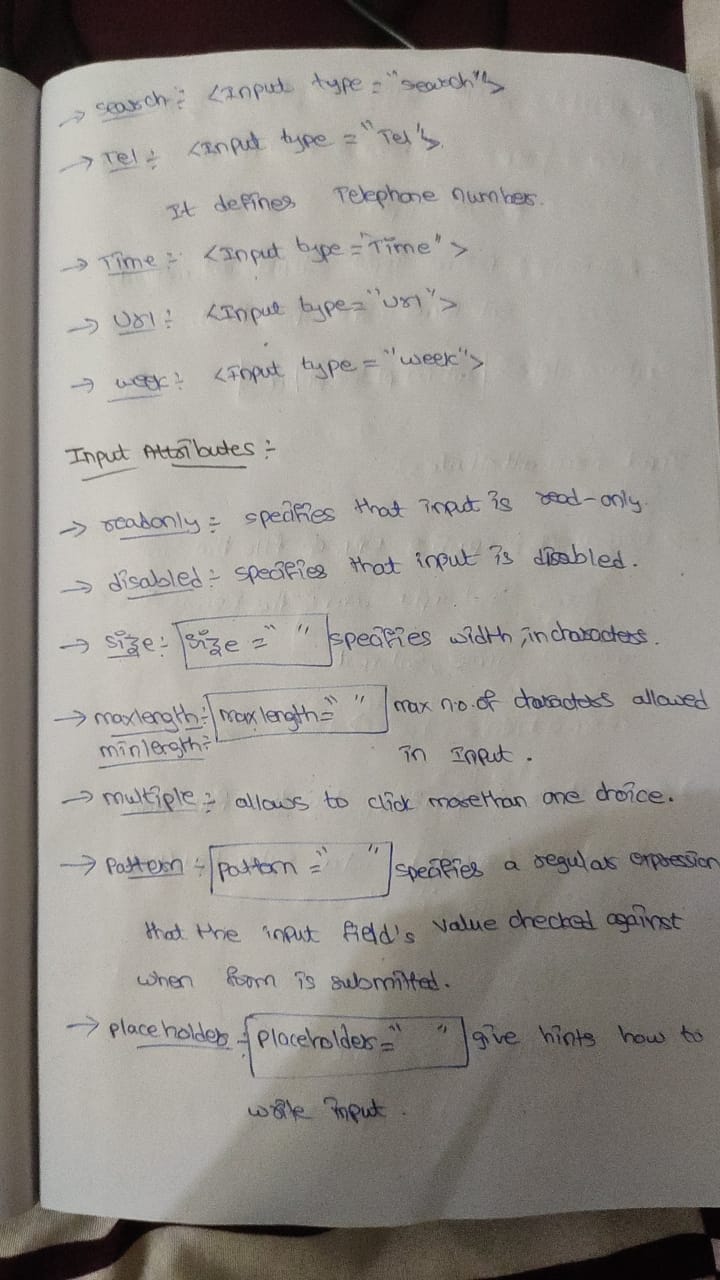 → search :- <Input type = "search">
→ Tel :- <Input type = "Tel">
It defines Telephone number.
→ Time :- <Input type = "Time">
→ Url :- <Input type = "Url">
→ week :- <Input type = "week">
Input Attributes :-
→ readonly :- specifies that input is read-only.
→ disabled :- specifies that input is disabled.
→ size :- size = " " specifies width, in characters.
→ maxlength :- maxlength = " " max no. of characters allowed
minlength :- in Input.
→ multiple :- allows to click more than one choice.
→ Pattern :- pattern = " " specifies a regular expression
that the input field's value checked against
when form is submitted.
→ placeholder :- placeholder = " " give hints how to
write input.